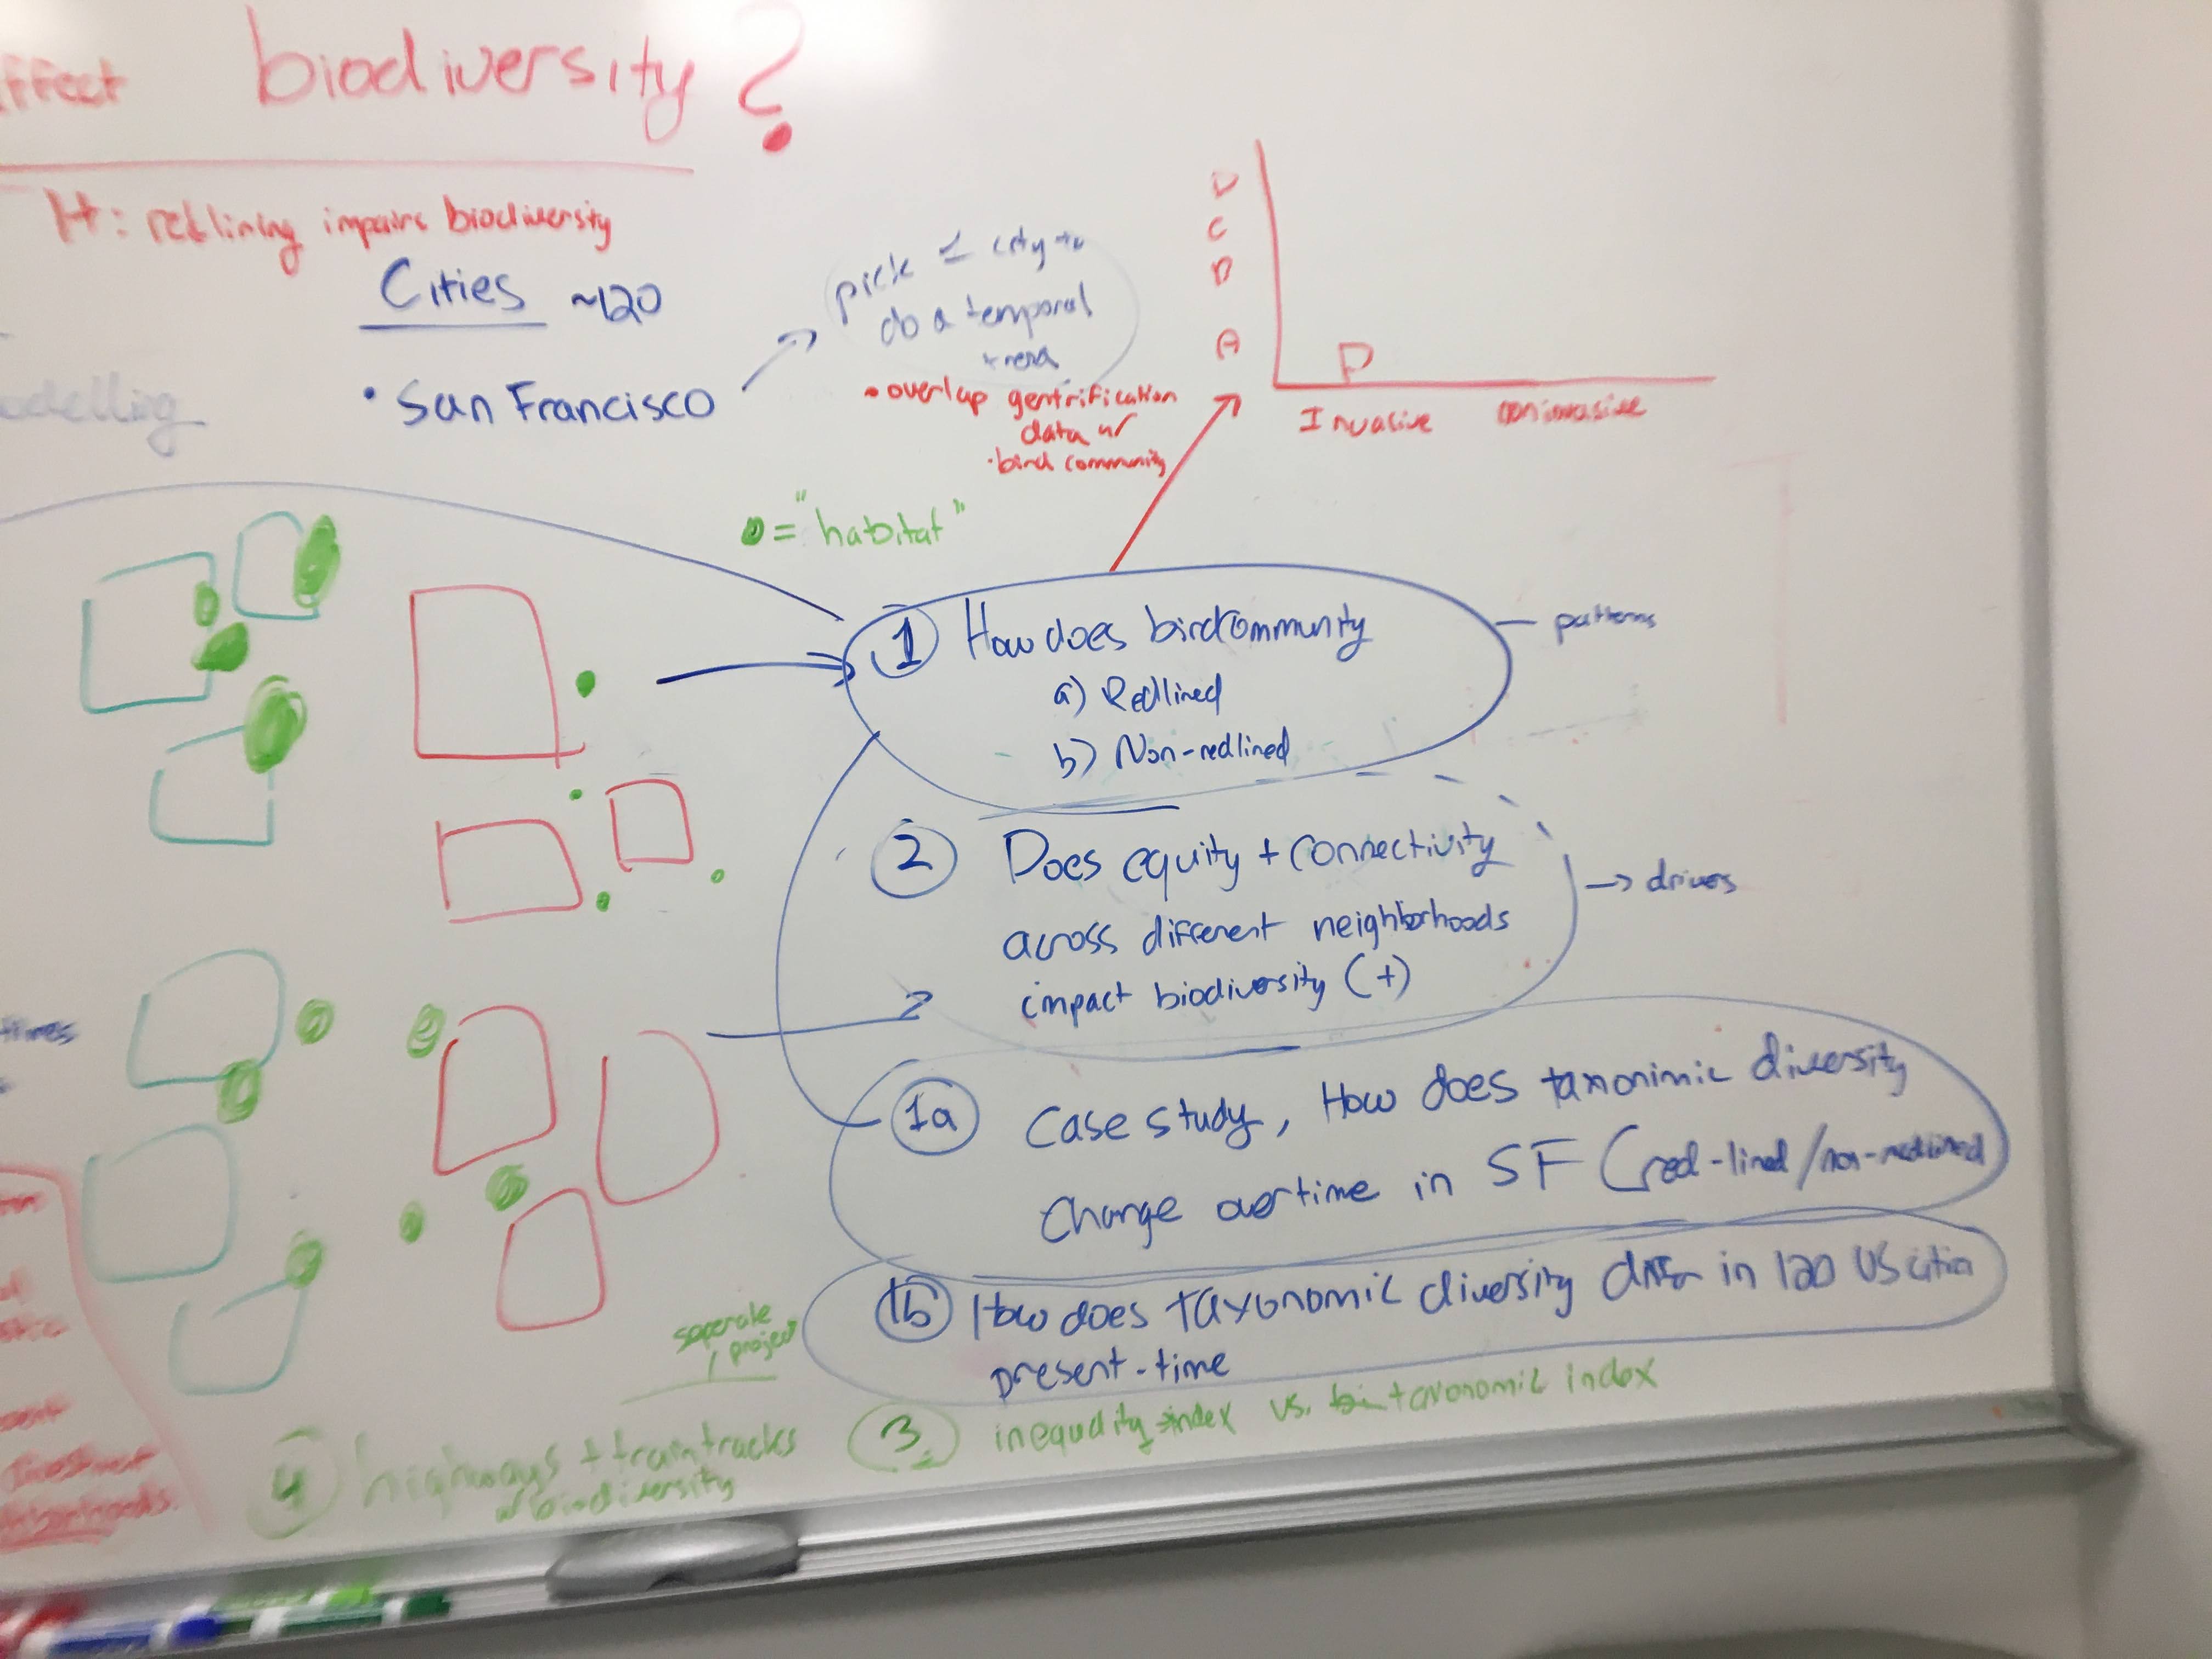 ffect biodiversity?
H: redlining impairs biodiversity
Cities ~120
• San Francisco
pick 1 city to
do a temporal
trend
• overlap gentrification
data w/
• bird community
D
C
B
A
P
Invasive noninvasive
odelling
= "habitat"
1 How does bird community
a) Redlined
b) Non-redlined
patterns
2 Does equity + connectivity
across different neighborhoods
impact biodiversity (+)
→ drives
times
1a Case study, How does taxonimic diversity
Change overtime in SF (red-lined/non-redlined
1b How does taxonomic diversity differ in 120 US cities
present-time
seperate
project
3 inequality index vs. taxonomic index
4 highways + traintracks
w biodiversity